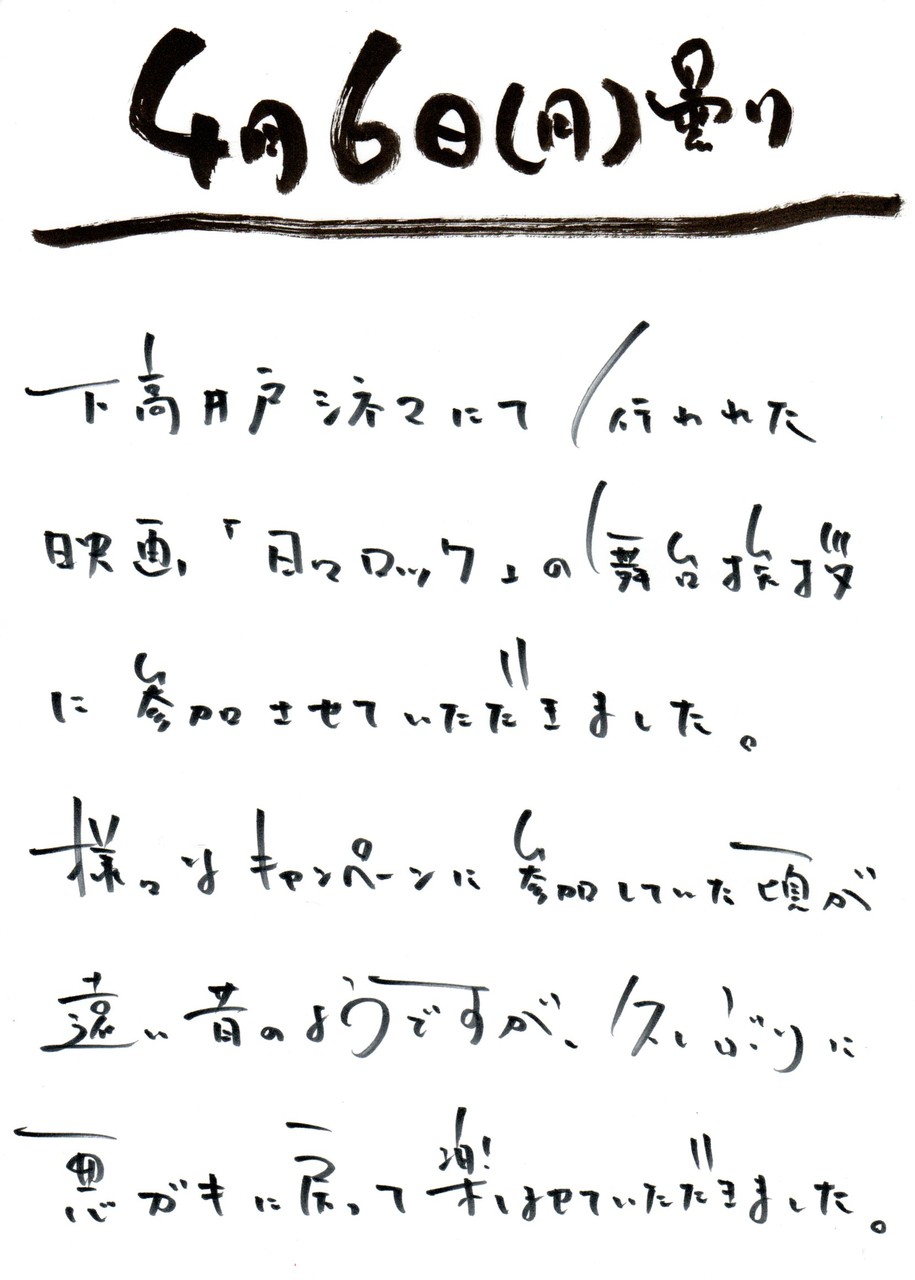 4月6日(月)曇り
下高井戸シネマにて行われた
映画「日々ロック」の舞台挨拶
に参加させていただきました。
様々なキャンペーンに参加していた頃が
遠い昔のようですが、久しぶりに
悪ガキに戻って楽しませていただきました。